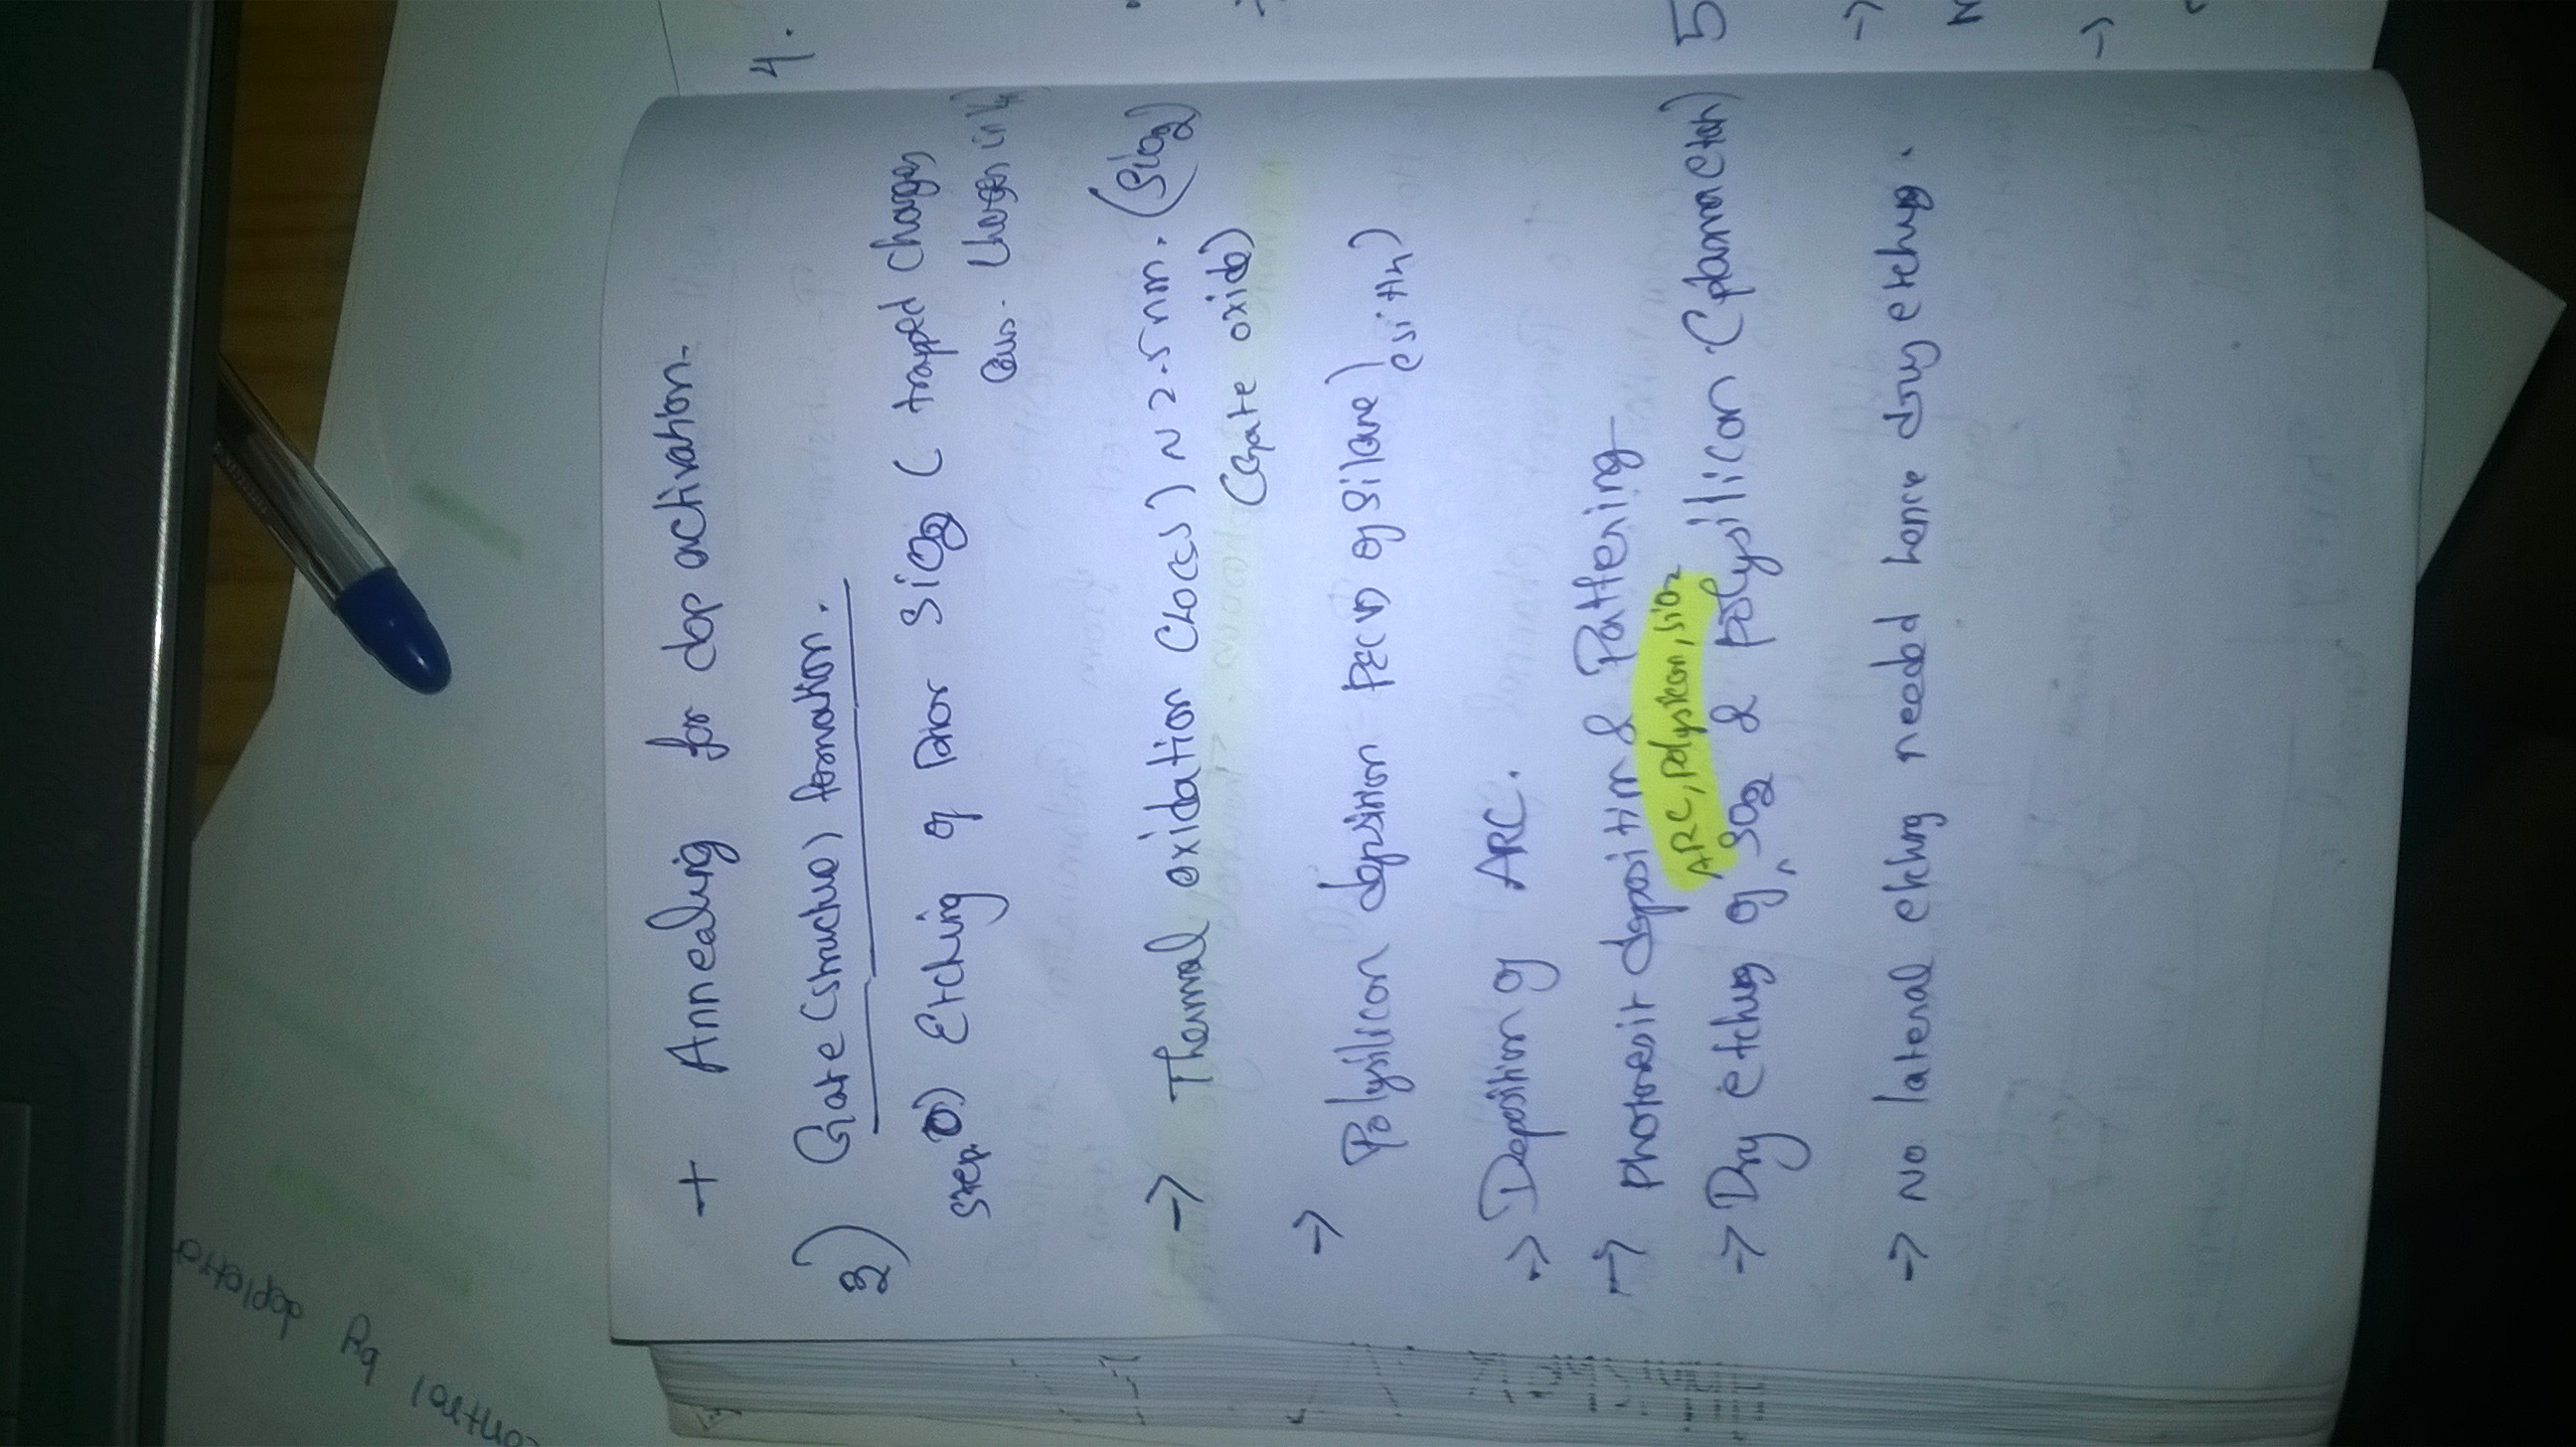 control by depletion
+ Annealing for dop activation.
3) Gate (structue) formation.
step. 0) Etching of Prior SiO2 ( trapped charges
Caus. Charges in
→ Thermal oxidation (LOCOS) ~ 2.5 nm. (SiO2)
(Gate oxide)
→ Polysilicon deposition PECVD of Silane
(SiH4)
→ Deposition of ARC.
→ Photoresit deposition & Pattering
ARC, Polysilicon, SiO2
→ Dry etching of SO2 & polysilicon (plasma etch)
→ No lateral etching needed hence dry etching.
4.
5